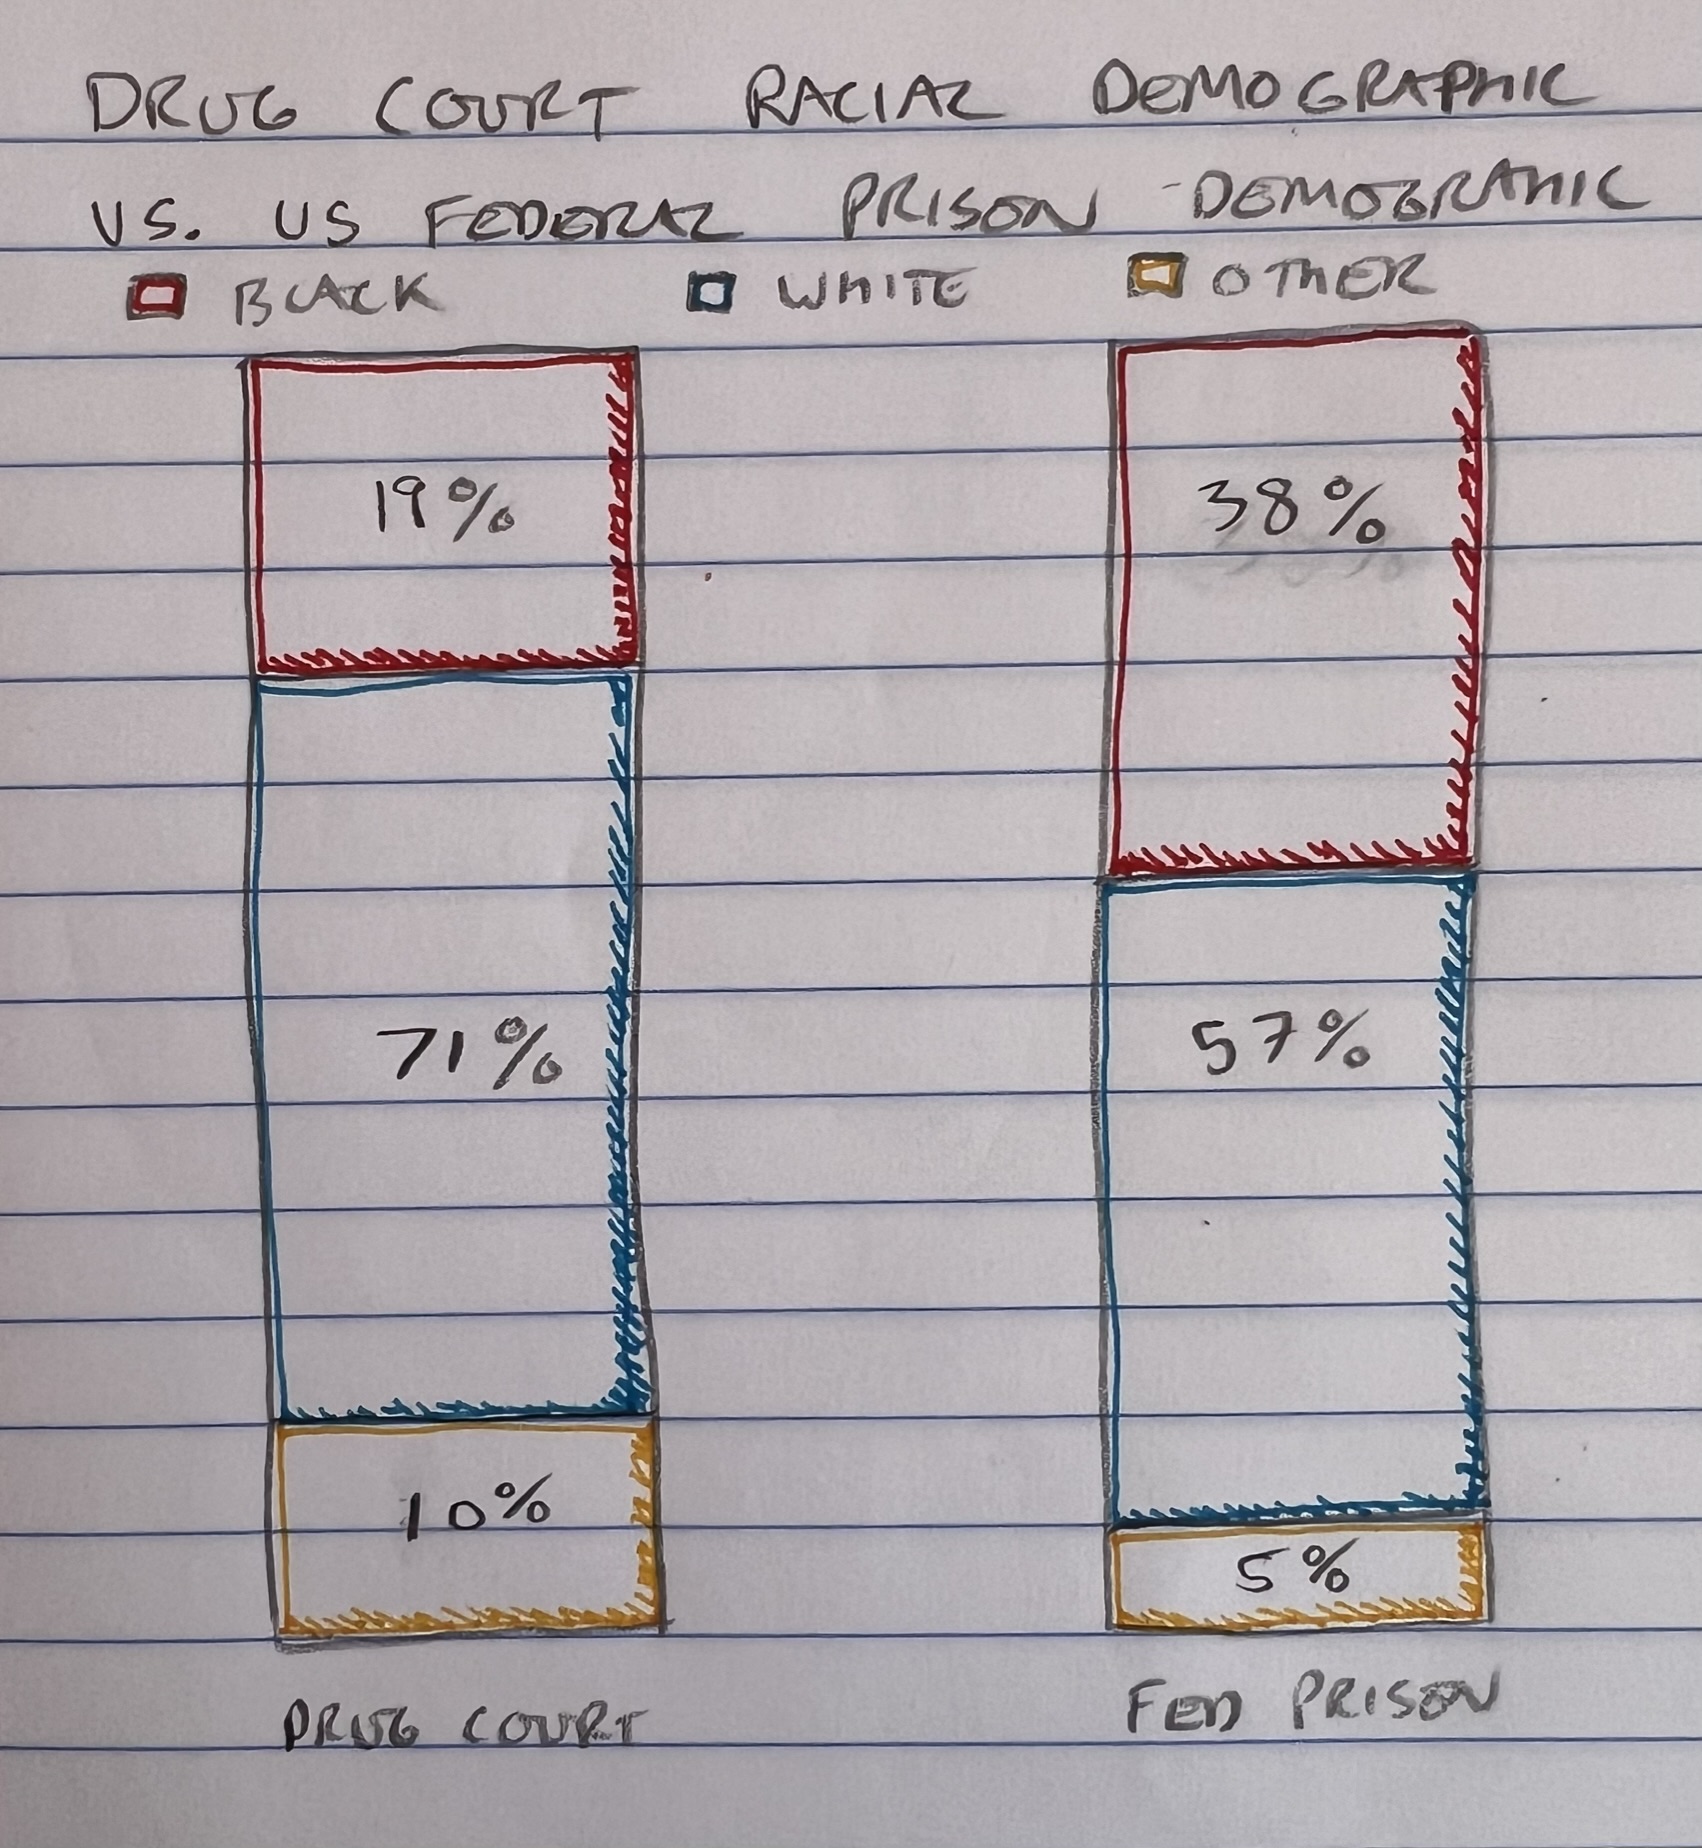 DRUG COURT RACIAL DEMOGRAPHIC
VS. US FEDERAL PRISON DEMOGRAPHIC
BLACK WHITE OTHER
19% 38%
71% 57%
10% 5%
DRUG COURT FED PRISON